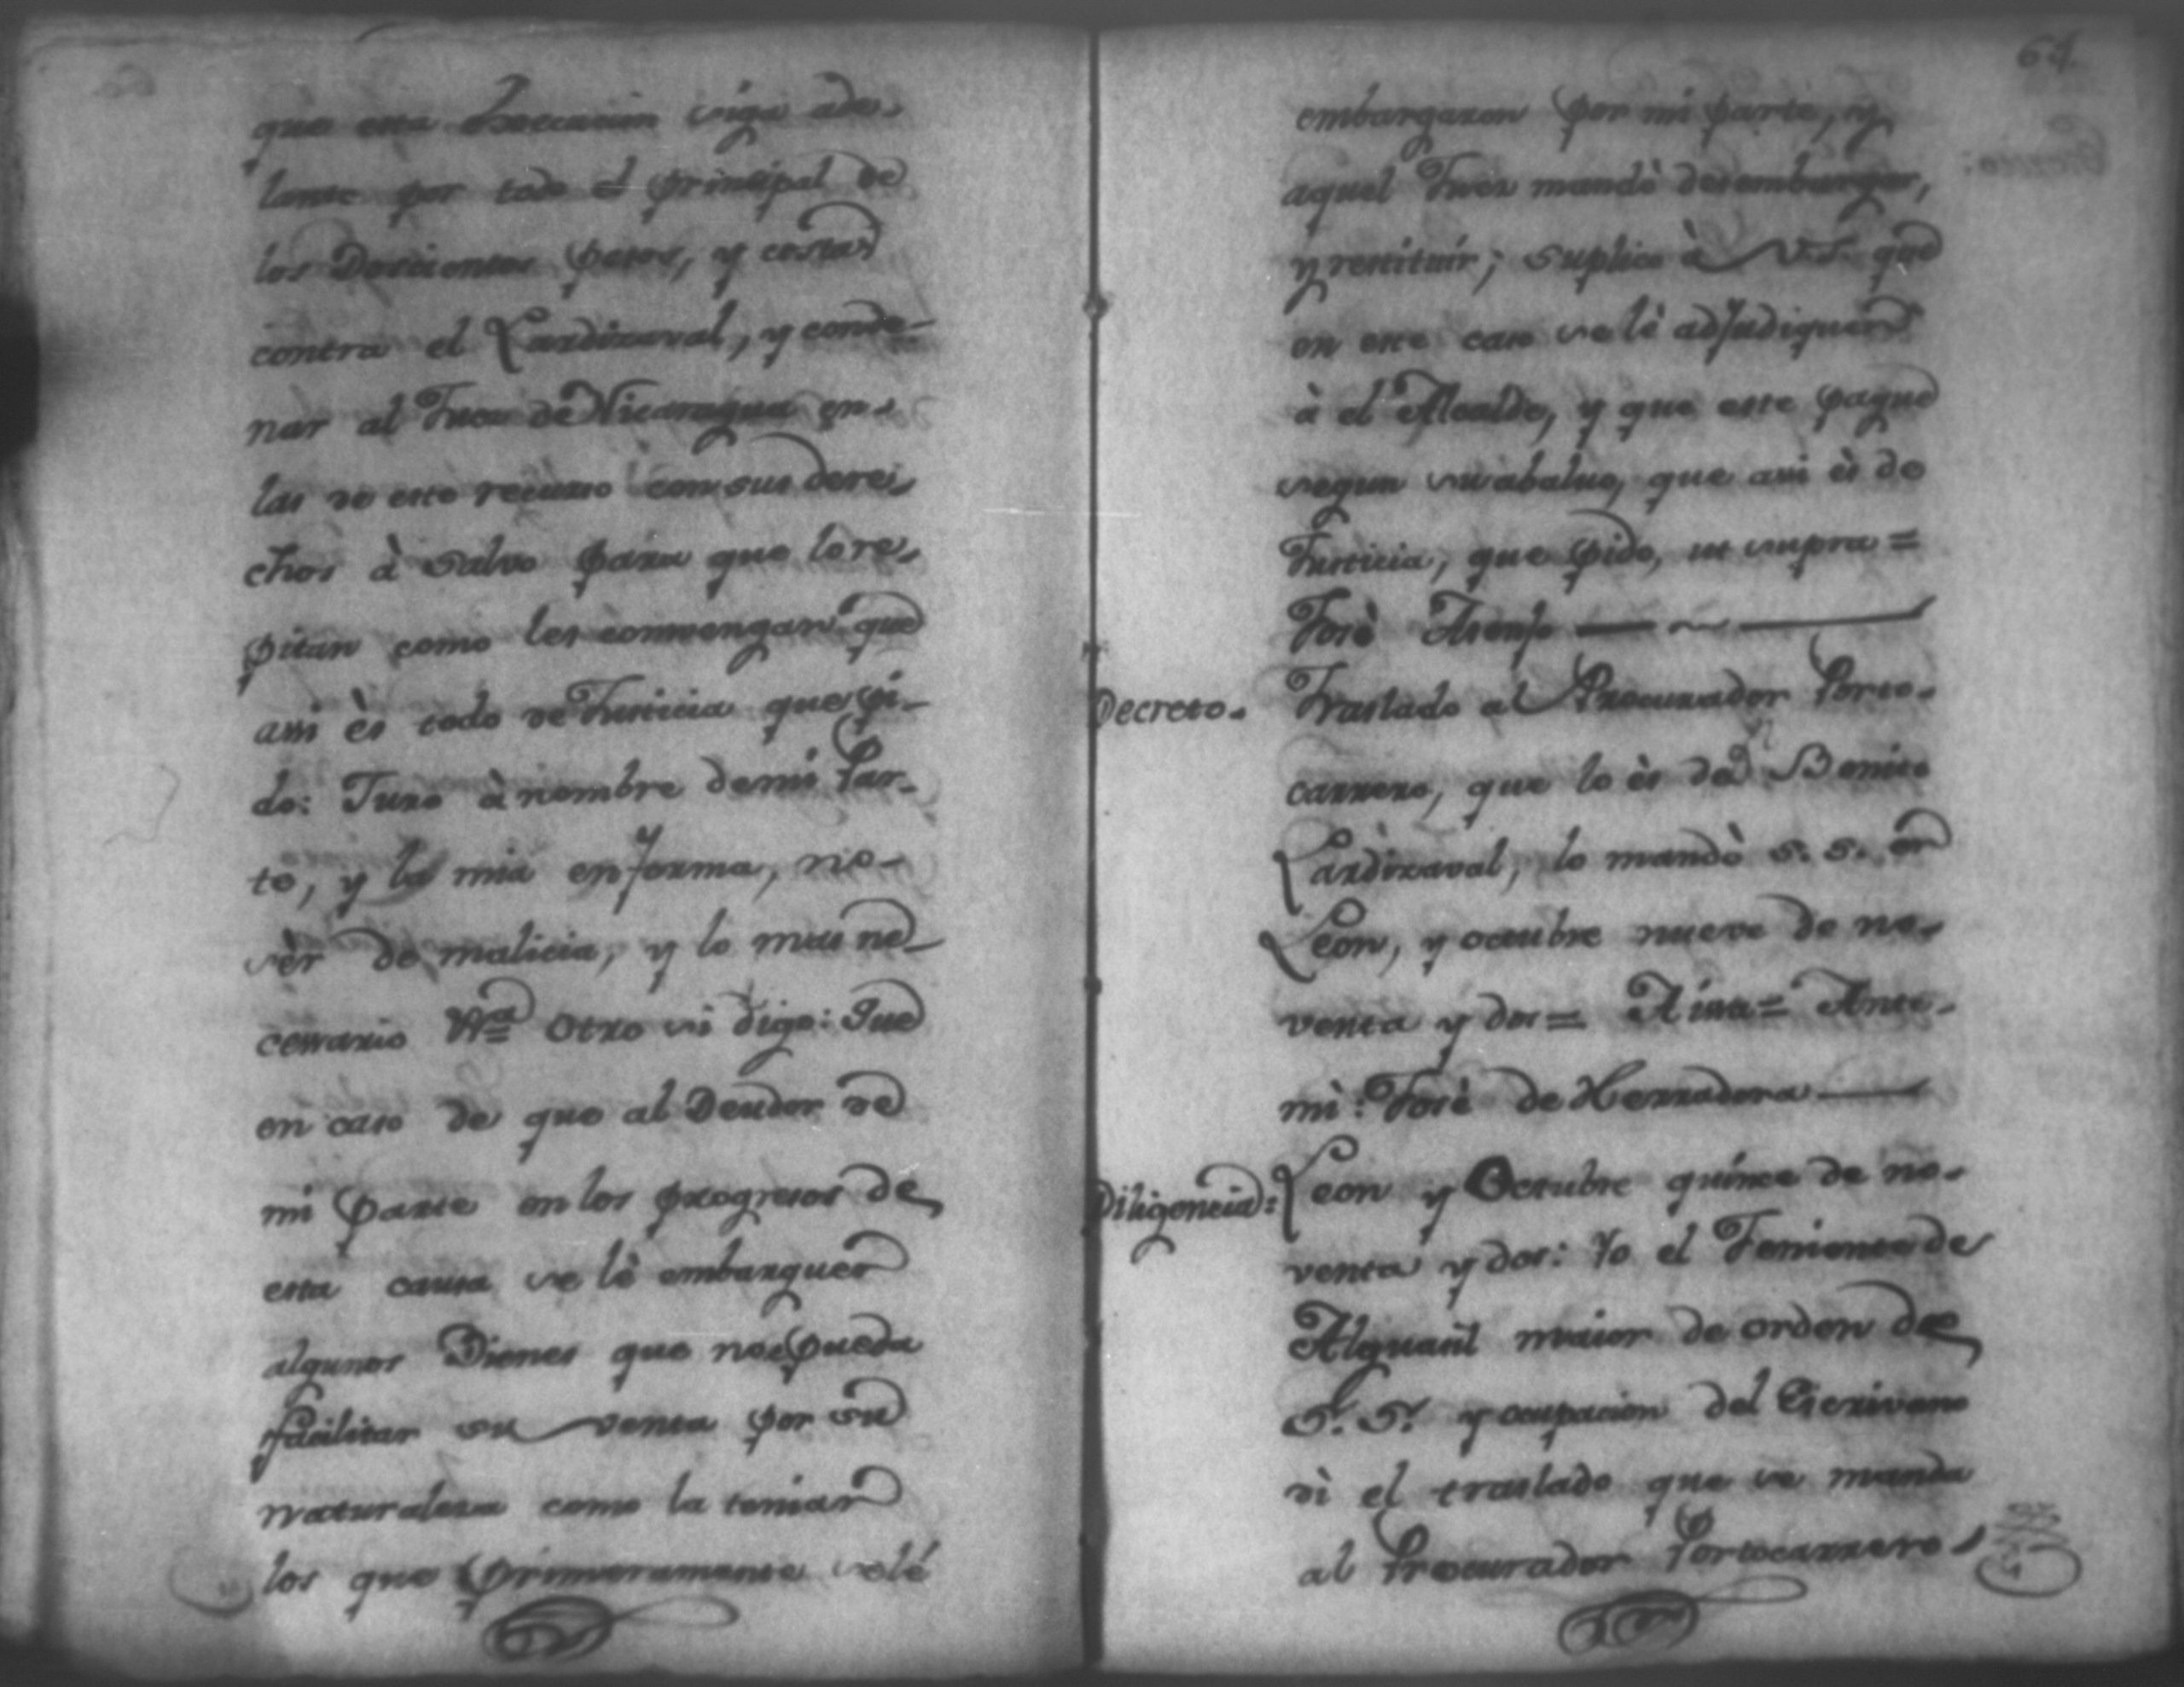 que esta Execucion siga ade-
lante por todo el principal de
los Doscientos pesos, y costas
contra el Lardizaval, y conde-
nar al Juez de Nicaragua en-
las de este recurso con sus dere-
chos à salvo para que lo re-
pitan como les convengan que
asi ès todo de Justicia que pi-
do: Juro à nombre de mi Par-
te, y la mia en forma, no-
sèr de malicia, y lo mas ne-
cessario Vtª Otro si digo: Que
en caso de que al Deudor de
mi parte en los progresos de
esta causa se lè embarguen
algunos Bienes que no se pueda
facilitar su venta por su
naturaleza como la tenian
los que primeramente se lé
64.
embargaron por mi parte, y
aquel Juez mandò desembargar,
y restituir; suplico à V.S. que
en este caso se lè adjudiquen
à el Alcalde, y que este pague
segun su abaluo, que asi ès de
Justicia, que pido, ut supra =
Josè Asenjo
Decreto. Traslado al Procurador Porto-
carrero, que lo ès de Dn Benito
Lardizaval, lo mandò S. S. en
Leon, y octubre nueve de no-
venta y dos = Aísa = Ante-
mì: Josè de Herradora
Diligencia: Leon y Octubre quince de no-
venta y dos: Yo el Teniente de
Alguacil maior de orden de
S. S. y ocupacion del Escrivano
dì el traslado que se manda
al Procurador Portocarrero